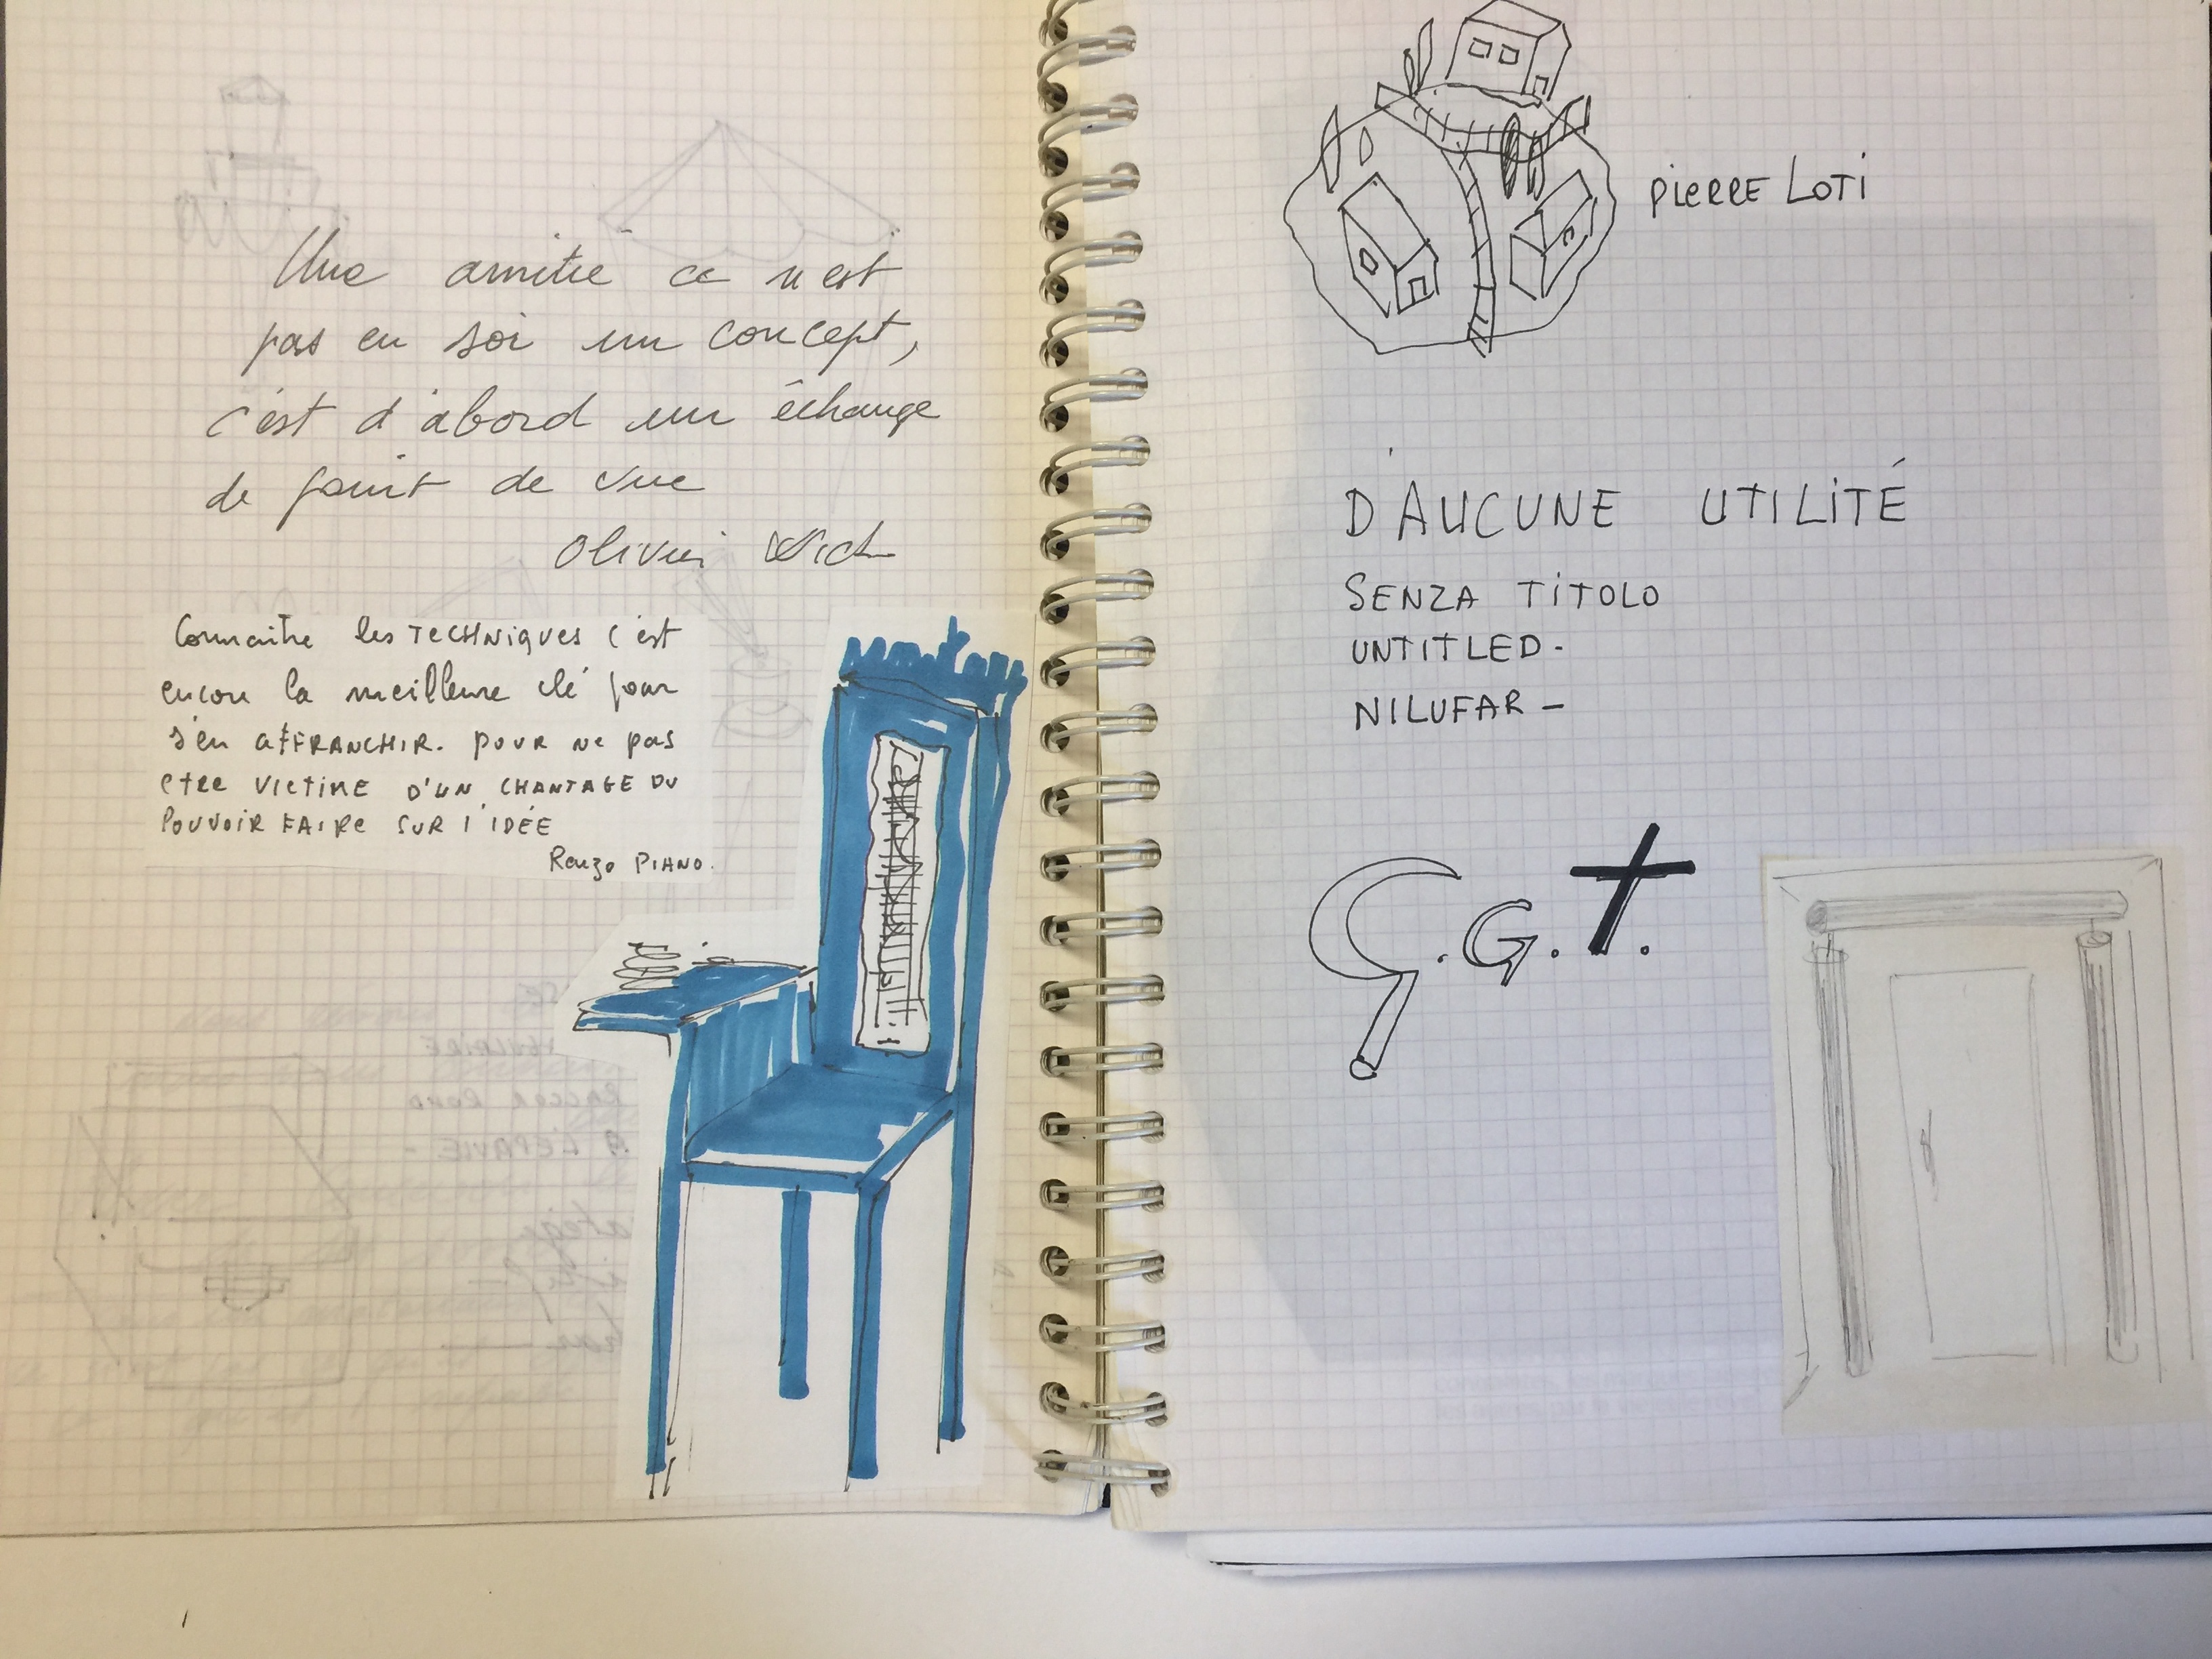 Une amitié ce n'est
pas en soi un concept,
c'est d'abord un échange
de point de vue
Olivier
Connaitre les TECHNIQUES c'est
encore la meilleure clé pour
s'en AFFRANCHIR. POUR Ne pas
etre VICTIME D'UN CHANTAGE DU
POUVOIR FAIRE SUR l'IDÉE
Renzo PIANO.
PIERRE LOTI
D'AUCUNE UTILITÉ
SENZA TITOLO
UNTITLED.
NILUFAR –
C.G.T.